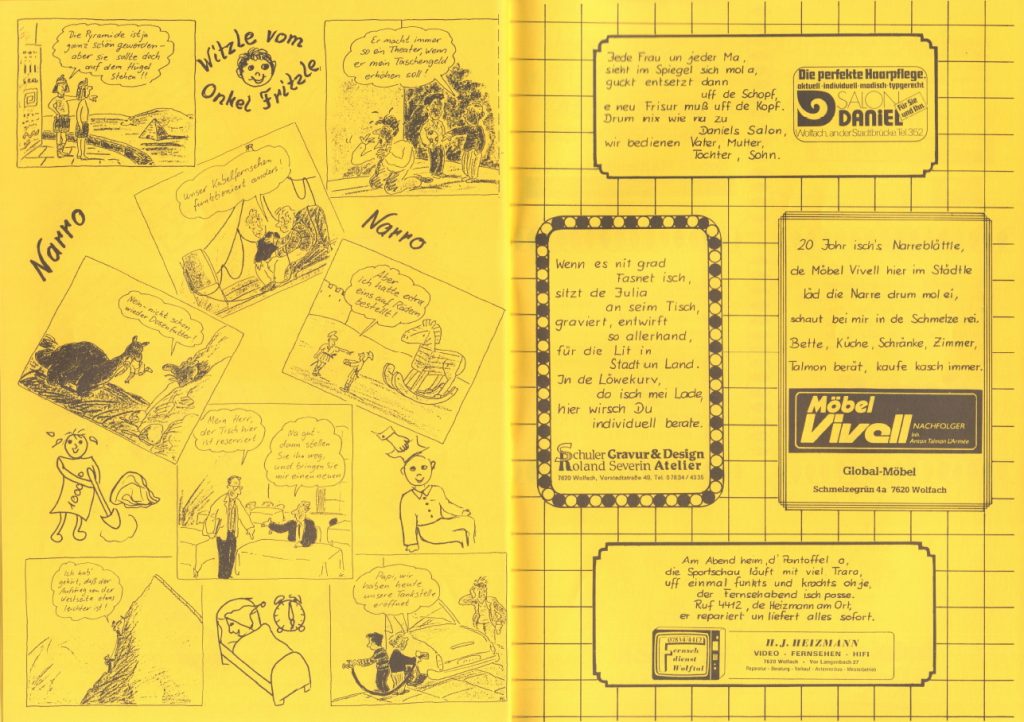 Die Pyramide ist ja
ganz schön geworden -
aber sie sollte doch
auf dem Hügel
stehen!!
Witzle vom
Onkel Fritzle
Er macht immer
so ein Theater, wenn
er mein Taschengeld
erhöhen soll!
Unser Kabelfernsehen
funktioniert anders!
Narro
Narro
Nein - nicht schon
wieder Dosenfutter!
Aber
ich hatte extra
eins auf Rädern
bestellt!
Mein Herr,
der Tisch hier
ist reserviert
Na gut -
dann stellen
Sie ihn weg,
und bringen Sie
mir einen neuen
1000
Ich hab'
gehört, daß der
Aufstieg von der
Westseite etwas
leichter ist!
Papi, wir
haben heute
unsere Tankstelle
eröffnet
Jede Frau un jeder Ma,
sieht im Spiegel sich mol a,
guckt entsetzt dann
uff de Schopf,
e neu Frisur muß uff de Kopf.
Drum nix wie na zu
Daniels Salon,
wir bedienen Vater, Mutter,
Tochter, Sohn.
Die perfekte Haarpflege.
aktuell·individuell·modisch·typgerecht
SALON
DANIEL
Für Sie
und Ihn
Wolfach, an der Stadtbrücke Tel. 362
Wenn es nit grad
Fasnet isch,
sitzt de Julia
an seim Tisch,
graviert, entwirft
so allerhand,
für die Lit in
Stadt un Land.
In de Löwekurv,
do isch mei Lade,
hier wirsch Du
individuell berate.
Schuler Gravur & Design
Roland Severin Atelier
7620 Wolfach, Vorstadtstraße 49, Tel. 07834/4335
20 Johr isch's Narreblättle,
de Möbel Vivell hier im Städtle
läd die Narre drum mol ei,
schaut bei mir in de Schmelze rei.
Bette, Küche, Schränke, Zimmer,
Talmon berät, kaufe kasch immer.
Möbel
Vivell
NACHFOLGER
Inh.
Anton Talmon L'Armée
Global-Möbel
Schmelzegrün 4a 7620 Wolfach
Am Abend heim, d' Pantoffel a,
die Sportschau läuft mit viel Trara,
uff einmal funkts und krachts oh je,
der Fernsehabend isch posse.
Ruf 4412, de Heizmann am Ort,
er repariert un liefert alles sofort.
07834/4412
Fernseh
dienst
Wolftal
H.J. HEIZMANN
VIDEO - FERNSEHEN - HIFI
7620 Wolfach - Vor Langenbach 27
Reparatur - Beratung - Verkauf - Antennenbau - Meisterbetrieb